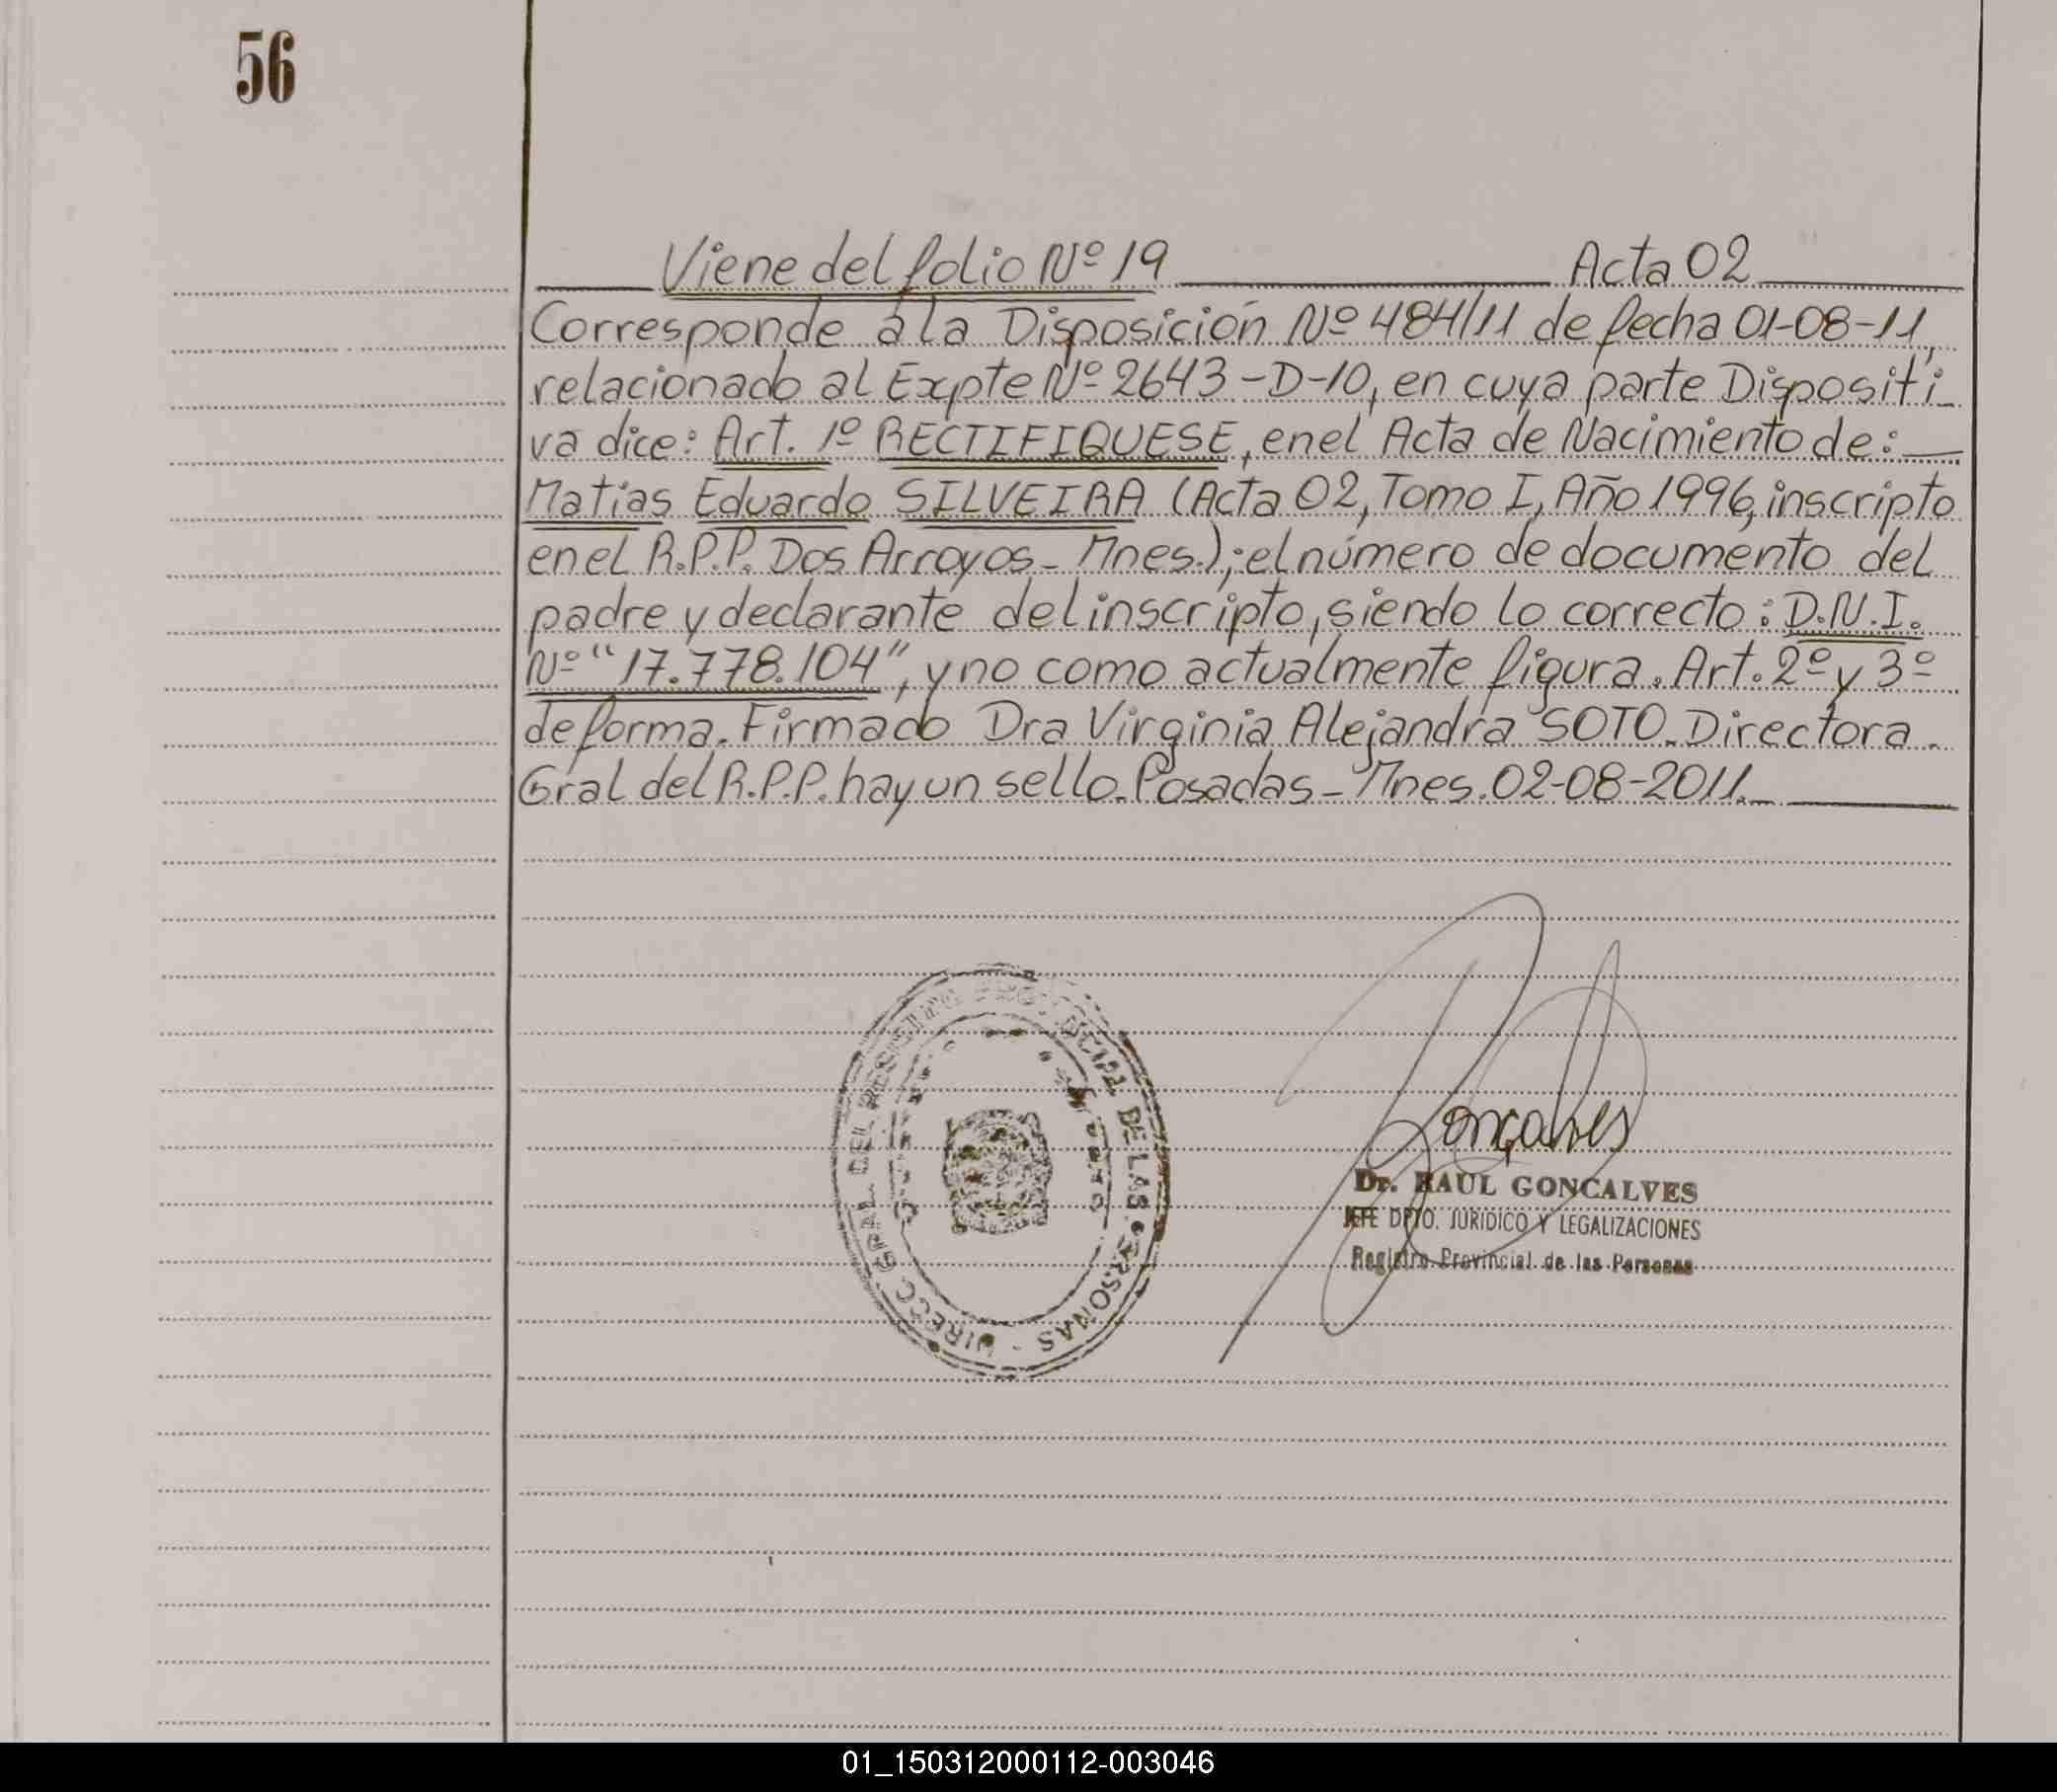 56
Viene del folio Nº 19 Acta 02
Corresponde a la Disposición Nº 484/11 de fecha 01-08-11,
relacionado al Expte Nº 2643-D-10, en cuya parte Dispositi-
va dice: Art. 1º RECTIFIQUESE, en el Acta de Nacimiento de:
Matías Eduardo SILVEIRA (Acta 02, Tomo I, Año 1996, inscripto
en el R.P.P. Dos Arroyos - Mnes.); el número de documento del
padre y declarante del inscripto, siendo lo correcto: D.N.I.
Nº "17.778.104", y no como actualmente figura. Art. 2º y 3º
de forma. Firmado Dra Virginia Alejandra SOTO. Directora.
Gral del R.P.P. hay un sello. Posadas - Mnes. 02-08-2011.
DIRECC GRAL. DEL REGISTRO PROVINCIAL DE LAS PERSONAS -
Goncalves
Dr. RAUL GONCALVES
JEFE DPTO. JURIDICO Y LEGALIZACIONES
Registro Provincial de las Personas
01_150312000112-003046